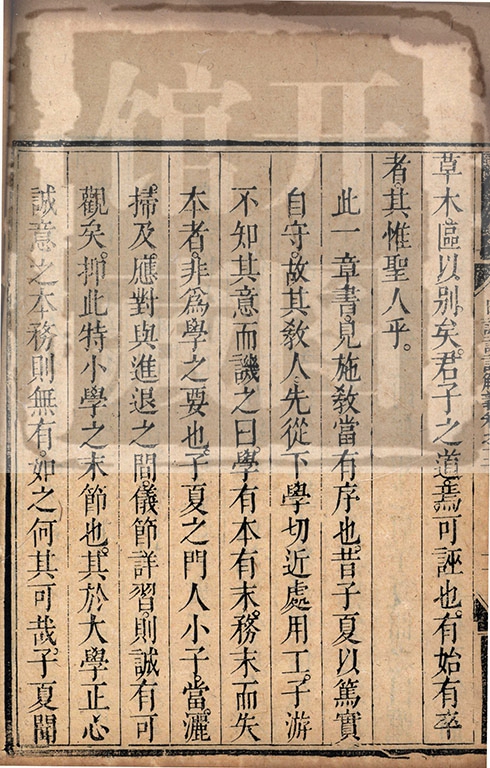 草木區以別矣。君子之道。焉可誣也。有始有卒
者。其惟聖人乎。
此一章書。見施教當有序也。昔子夏以篤實
自守。故其教人先從下學切近處用工。子游
不知其意而譏之曰。學有本有末。務末而失
本者。非爲學之要也。子夏之門人小子。當灑
掃及應對與進退之間。儀節詳習。則誠有可
觀矣。抑此特小學之末節也。其於大學正心
誠意之本務則無有。如之何其可哉。子夏聞